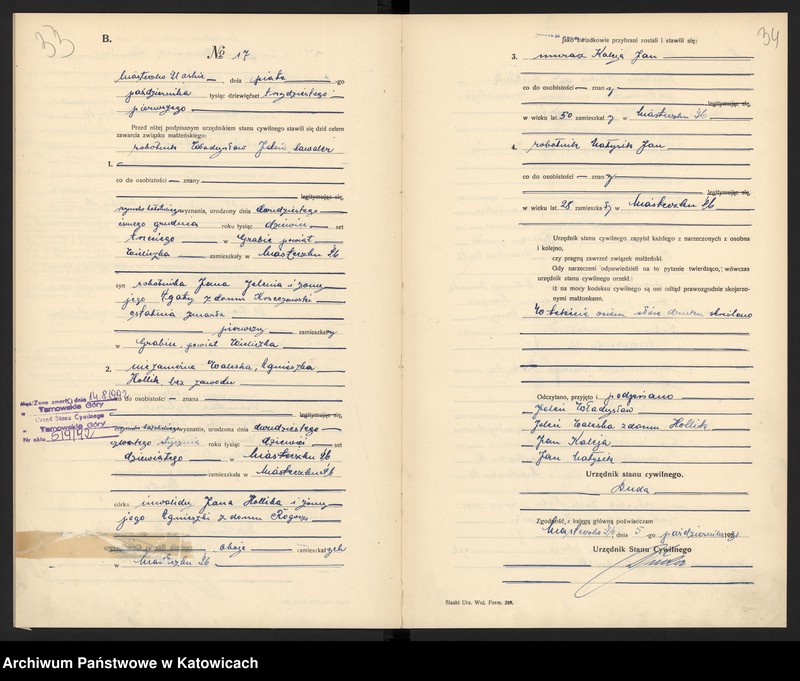 33
B.
№ 17
dnia piąte -go
października tysiąc dziewięćset trzydziestego
pierwszego
Przed niżej podpisanym urzędnikiem stanu cywilnego stawili się dziś celem
zawarcia związku małżeńskiego:
robotnik Władysław Jeleń, kawaler
1.
co do osobistości — znany
legitymując się
wyznania, urodzony dnia dwudziestego
ósmego grudnia roku tysiąc dziewięć set
trzeciego w Grabie powiat
Wieliczka zamieszkały w Miasteczku Śl.
syn robotnika Jana Jelenia i żony
jego Agaty z domu
ostatnia zmarła
pierwszy zamieszkały
w Grabiu, powiat Wieliczka
2. niezamężna Waleska, Agnieszka
Hollik bez zawodu
co do osobistości — znana
legitymując się
wyznania, urodzona dnia dwudziestego
stycznia roku tysiąc dziewięć set
dziewiątego w Miasteczku Śl.
zamieszkała w Miasteczku Śl.
córka inwalidy Jana Hollika i żony
jego Agnieszki z domu Rogosz
oboje zamieszkałych
w Miasteczku Śl.
Mąż/Żona zmarł(a) dnia 14.8.1992
w Tarnowskie Góry
Urząd Stanu Cywilnego
w Tarnowskie Góry
Nr aktu 519/92
34
jako świadkowie przybrani zostali i stawili się:
3. murarz Kaleja Jan
co do osobistości — znany
legitymując się
w wieku lat 50 zamieszkały w Miasteczku Śl.
4. robotnik Małysik Jan
co do osobistości — znany
legitymując się
w wieku lat 28 zamieszkały w Miasteczku Śl.
Urzędnik stanu cywilnego zapytał każdego z narzeczonych z osobna
i kolejno,
czy pragną zawrzeć związek małżeński.
Gdy narzeczeni odpowiedzieli na to pytanie twierdząco, wówczas
urzędnik stanu cywilnego orzekł:
iż na mocy kodeksu cywilnego są oni odtąd prawozgodnie skojarzo-
nymi małżonkami.
W tekście osiem słów drukiem skreślono
Odczytano, przyjęto i podpisano
Jeleń Władysław
Jeleń Waleska z domu Hollik
Jan Kaleja
Jan Małysik
Urzędnik stanu cywilnego.
Duda
Zgodność z księgą główną poświadczam
dnia 5 -go października 1931
Urzędnik Stanu Cywilnego
Duda
Śląski Urz. Woj. Form. 209.
Archiwum Państwowe w Katowicach